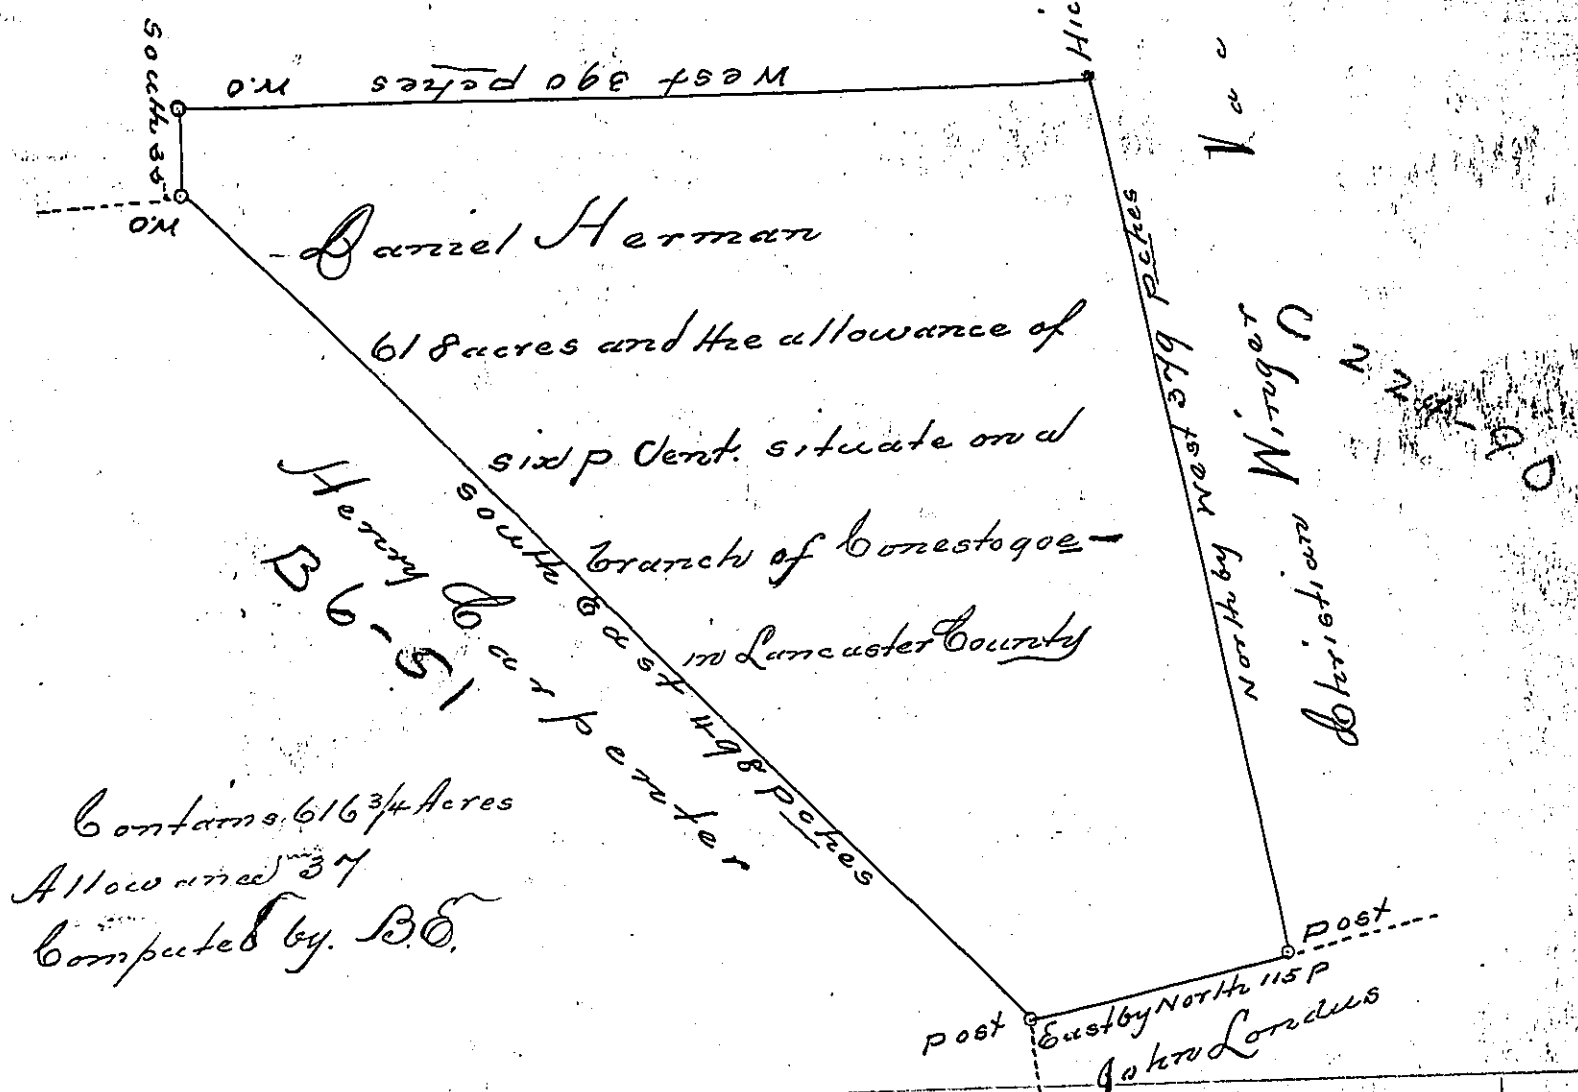 South 35
West 390 pches W.O
Hic
Vac
W.O
Daniel Herman
618 acres and the allowance of
six p Cent. situate on a
branch of Conestogoe
in Lancaster County
North by West 379 pches
Christian Winger
Henry Carpenter
B6-51
South East 498 pches
Contains 616 3/4 Acres
Allowance 37
Computed by. B.E.
post
East by North 115 P
post
John Londus